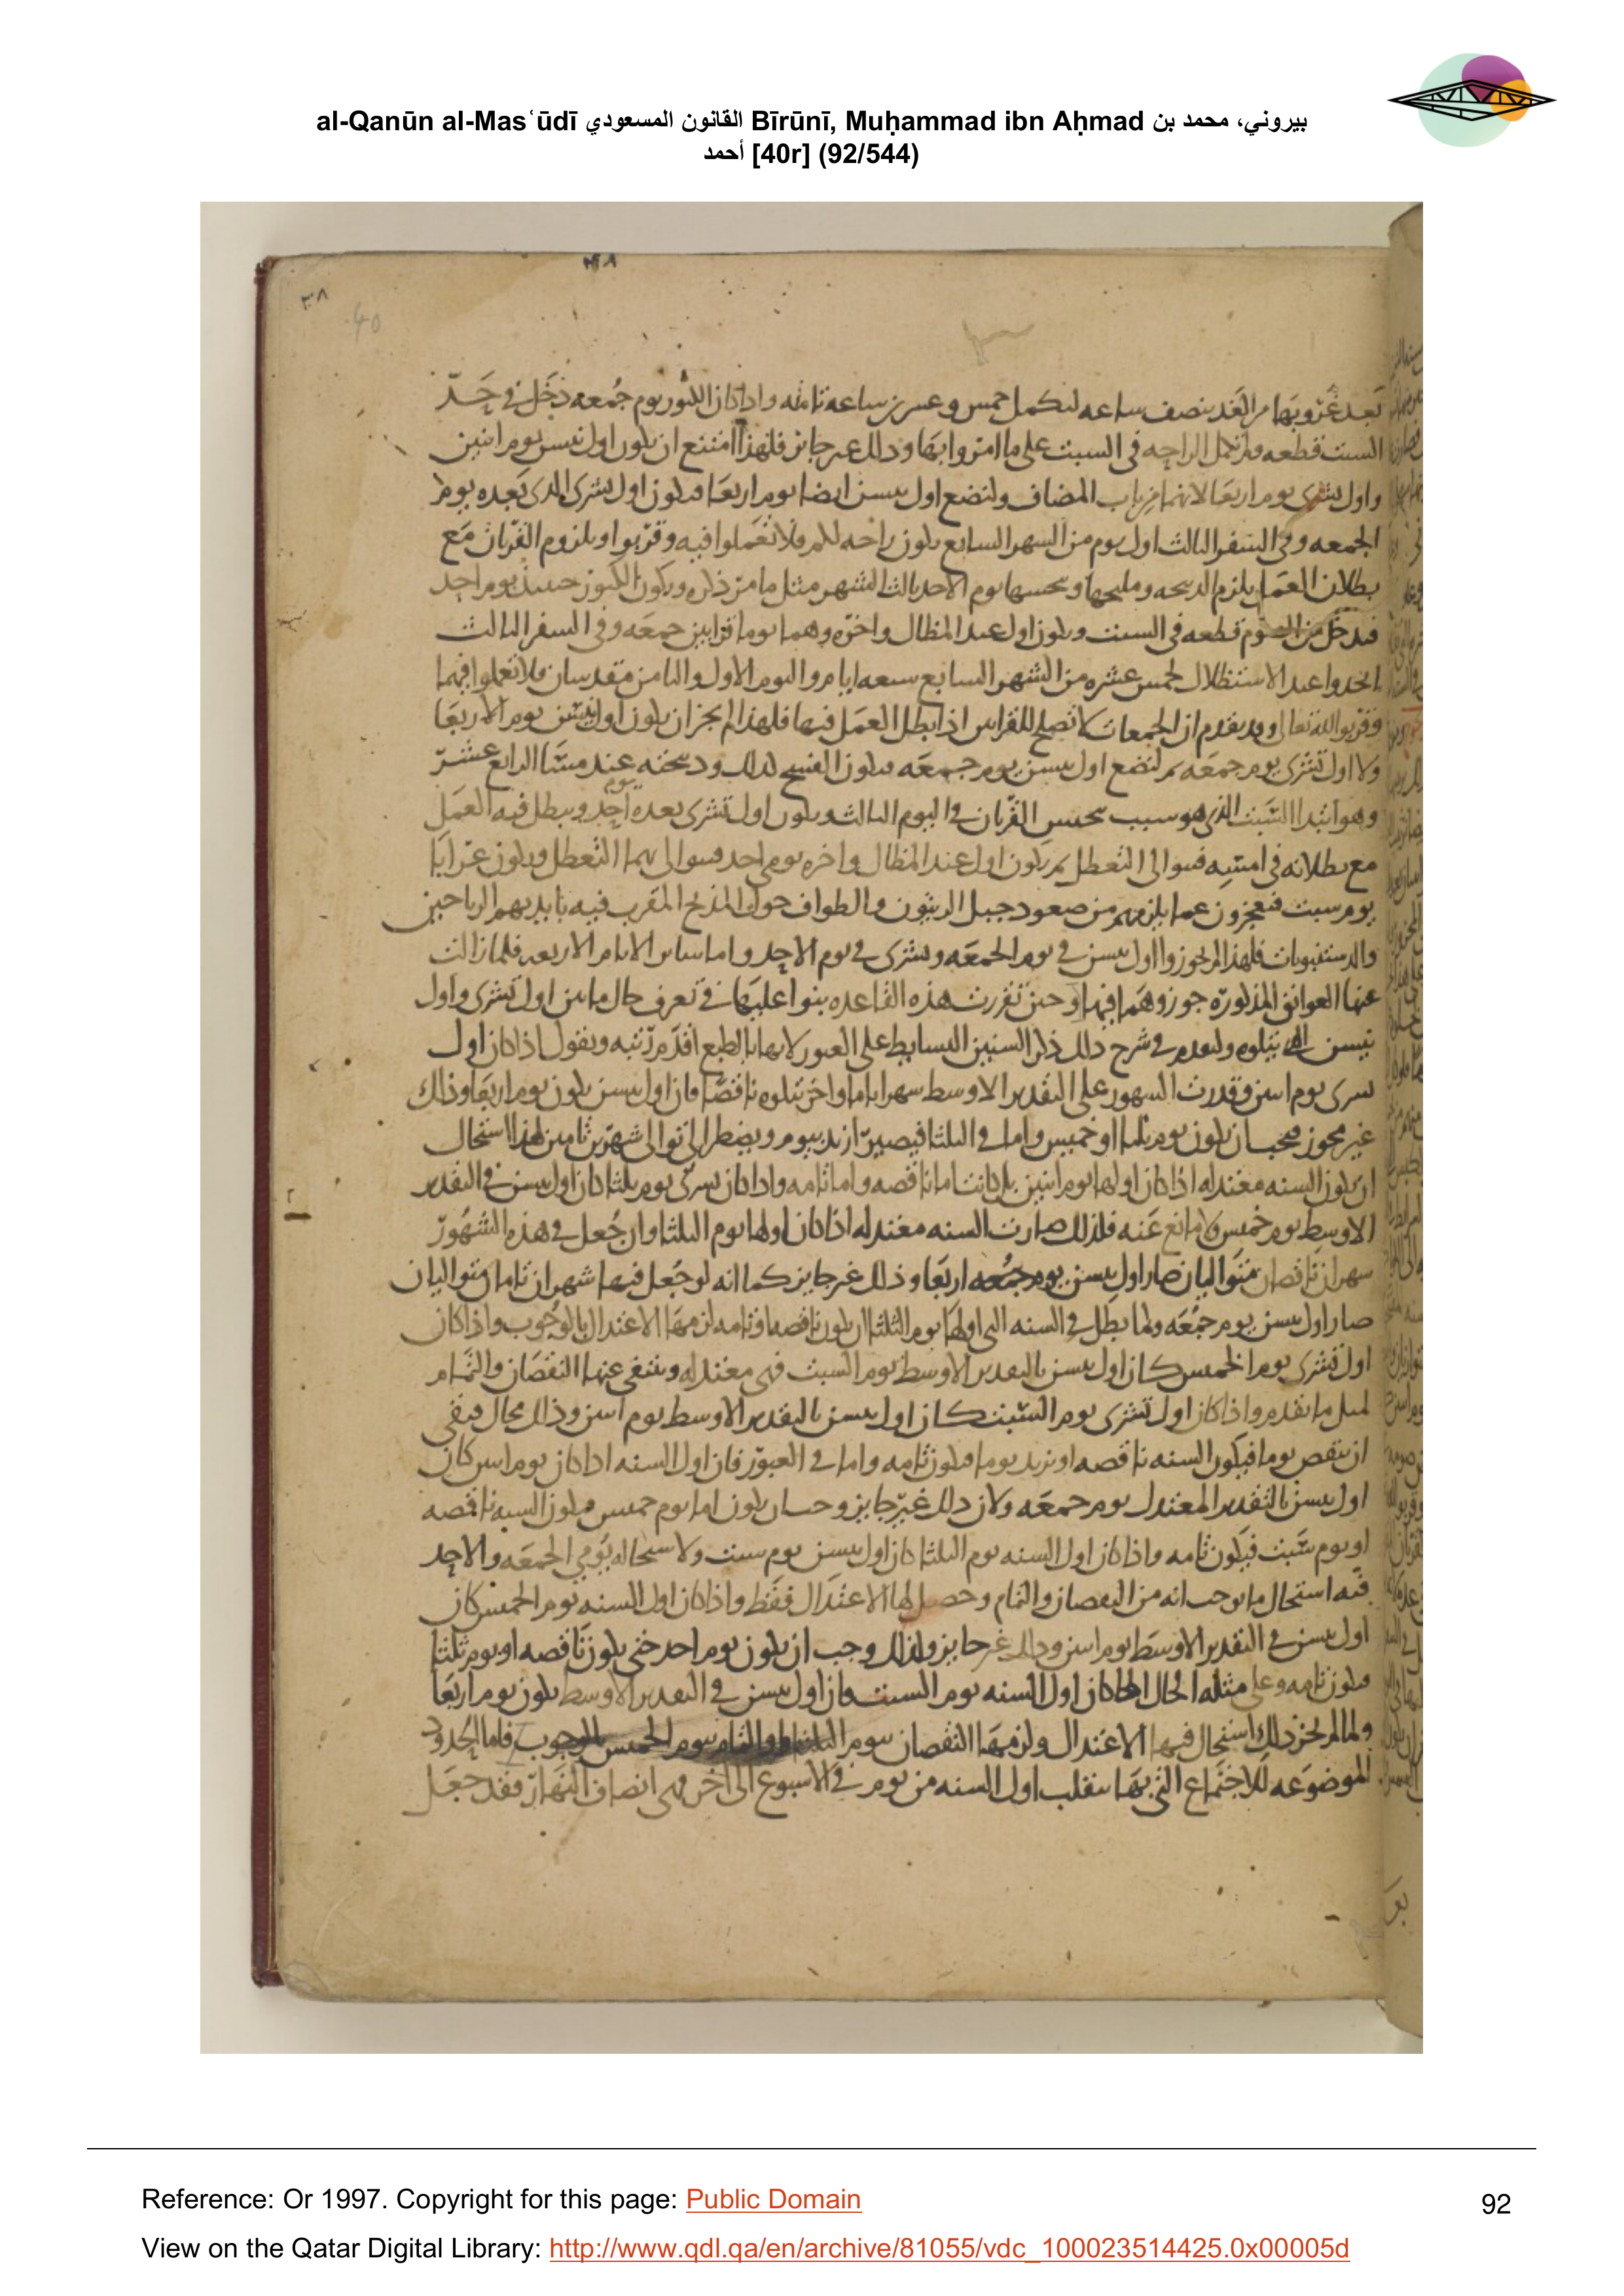 al-Qanūn al-Masʿūdī القانون المسعودي Bīrūnī, Muḥammad ibn Aḥmad بيروني، محمد بن
أحمد [40r] (92/544)
٣٨
40
بعد غروبها من الغد بنصف ساعه لتكمل خمس وعشرين ساعه تامه واذا كان الكبور يوم جمعه دخل في حد
السبت قطعه ولم تكمل الراحه في السبت على ما امروا بها وذلك غير جايز فلهذا امتنع ان يكون اول نيسن يوم اثنين
واول تشرى يوم اربعا لانهما من باب المضاف ولنضع اول نيسن ايضا يوم اربعا فيكون اول تشرى الذى بعده يوم
الجمعه وفى السفر الثالث اول يوم من الشهر السابع يكون راحه لكم فلا تعملوا فيه وقربوا ويلزوم القربان مع
بطلان العمل يلزم الذبيحه ومليحها وتحبسها يوم الاحد ثالث الشهر مثل ما مر ذكره ويكون الكبور حينئذ يوم احد
فيدخل من الصوم قطعه فى السبت ويكون اول عيد المظال واخره وهما يوما قرابين جمعه وفى السفر الثالث
اتخذوا عيد الاستظلال لخمس عشره من الشهر السابع سبعه ايام واليوم الاول والثامن مقدسان فلا تعملوا فيهما
وقربوا لله تعالى وقد تقدم ان الجمعات لا تصلح للقرابين اذا بطل العمل فيها فلهذا لم يجز ان يكون اول نيسن يوم الاربعا
ولا اول تشرى يوم جمعه ثم لنضع اول نيسن يوم جمعه فيكون الفسح لذلك وذبحته عند مسا الرابع عشر
وهو ابتدا السبت الذى هو سبب تحبس القربان فى اليوم الثالث ويكون اول تشرى بعده يوم احد ويبطل فيه العمل
مع بطلانه فى امسه فتوالى التعطل ثم يكون اول عيد المظال واخره يومى احد فتوالى بهما التعطل ويكون عرابا
يوم سبت فيعجزون عما يلزمهم من صعود جبل الزيتون والطواف حول المذبح المقرب فيه بايديهم الرياحين
والدستنبويات فلهذا لم يجوزوا اول نيسن فى يوم الجمعه وتشرى فى يوم الاحد واما ساير الايام الاربعه فلما زالت
عنها العوايق المذكوره جوزوهما فيها وحين تقررت هذه القاعده بنوا عليها فى تعرف حال ما بين اول تشرى واول
نيسن الذى يتلوه ولنقدم فى شرح ذلك ذكر السنين البسايط على العبور لانها بالطبع اقدم رتبه ونقول اذا كان اول
تشرى يوم اثنين وقدرت الشهور على التقدير الاوسط شهرا تاما واخر يتلوه ناقصا فان اول نيسن يكون يوم اربعا وذاك
غير مجوز فيجب ان يكون يوم ثلثا او خميس واما فى الثلثا فيصير ازيد بيوم ويضطر الى توالى شهرين تامين لهذا استحال
ان يكون السنه معتدله اذا كان اولها يوم اثنين بل كانت اما ناقصه واما تامه واذا كان تشرى يوم ثلثا كان اول نيسن فى التقدير
الاوسط يوم خميس ولا مانع عنه فلذلك صارت السنه معتدله اذا كان اولها يوم الثلثا وان جعل فى هذه الشهور
شهران ناقصان متواليان صار اول نيسن يوم جمعه اربعا وذلك غير جايز كما انه لو جعل فيها شهران تامان متواليان
صار اول نيسن يوم جمعه ولما بطل فى السنه التى اولها يوم الثلثا ان يكون ناقصه او تامه لزمها الاعتدال بالوجوب واذا كان
اول تشرى يوم الخميس كان اول نيسن بالتقدير الاوسط يوم السبت فهى معتدله وينتفى عنها النقصان والتمام
لمثل ما تقدم واذا كان اول تشرى يوم السبت كان اول نيسن بالتقدير الاوسط يوم اثنين وذلك محال فبقى
ان ينقص يوما فيكون السنه ناقصه او يزيد يوما فيكون تامه واما فى العبور فان اول السنه اذا كان يوم اثنين كان
اول نيسن بالتقدير المعتدل يوم جمعه ولان ذلك غير جايز وجب ان يكون اما يوم خميس فيكون السنه ناقصه
او يوم سبت فيكون تامه واذا كان اول السنه يوم الثلثا كان اول نيسن يوم سبت ولاستحاله يومى الجمعه والاحد
فيه استحال ما يوجب انه من النقصان والتمام وحصل لها الاعتدال فقط واذا كان اول السنه يوم الخميس كان
اول نيسن فى التقدير الاوسط يوم اثنين وذلك غير جايز ولذلك وجب ان يكون يوم احد حتى يكون ناقصه او يوم ثلثا
فيكون تامه وعلى مثله الحال اذا كان اول السنه يوم السبت فان اول نيسن فى التقدير الاوسط يكون يوم اربعا
ولما لم يجز ذلك استحال فيها الاعتدال ولزمها النقصان بيوم الثلثا والتمام بيوم الخميس بالوجوب فاما الحدود
الموضوعه للاجتماع التى بها ينقلب اول السنه من يوم فى الاسبوع الى اخر فهى انصاف النهار فقد جعل
Reference: Or 1997. Copyright for this page: Public Domain
92
View on the Qatar Digital Library: http://www.qdl.qa/en/archive/81055/vdc_100023514425.0x00005d